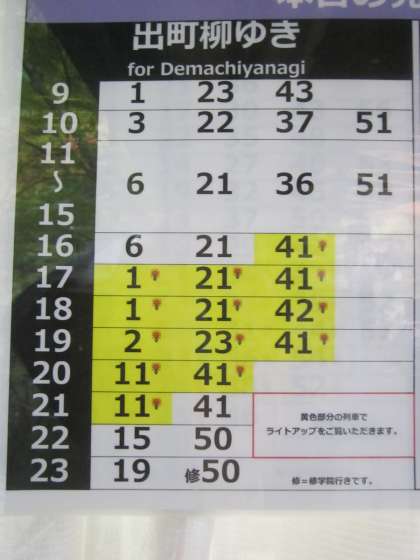 出町柳ゆき
for Demachiyanagi
9 1 23 43
10 3 22 37 51
11
～ 6 21 36 51
15
16 6 21 41
17 1 21 41
18 1 21 42
19 2 23 41
20 11 41
21 11 41
黄色部分の列車で
ライトアップをご覧いただきます。
22 15 50
23 19 修50
修＝修学院行きです。